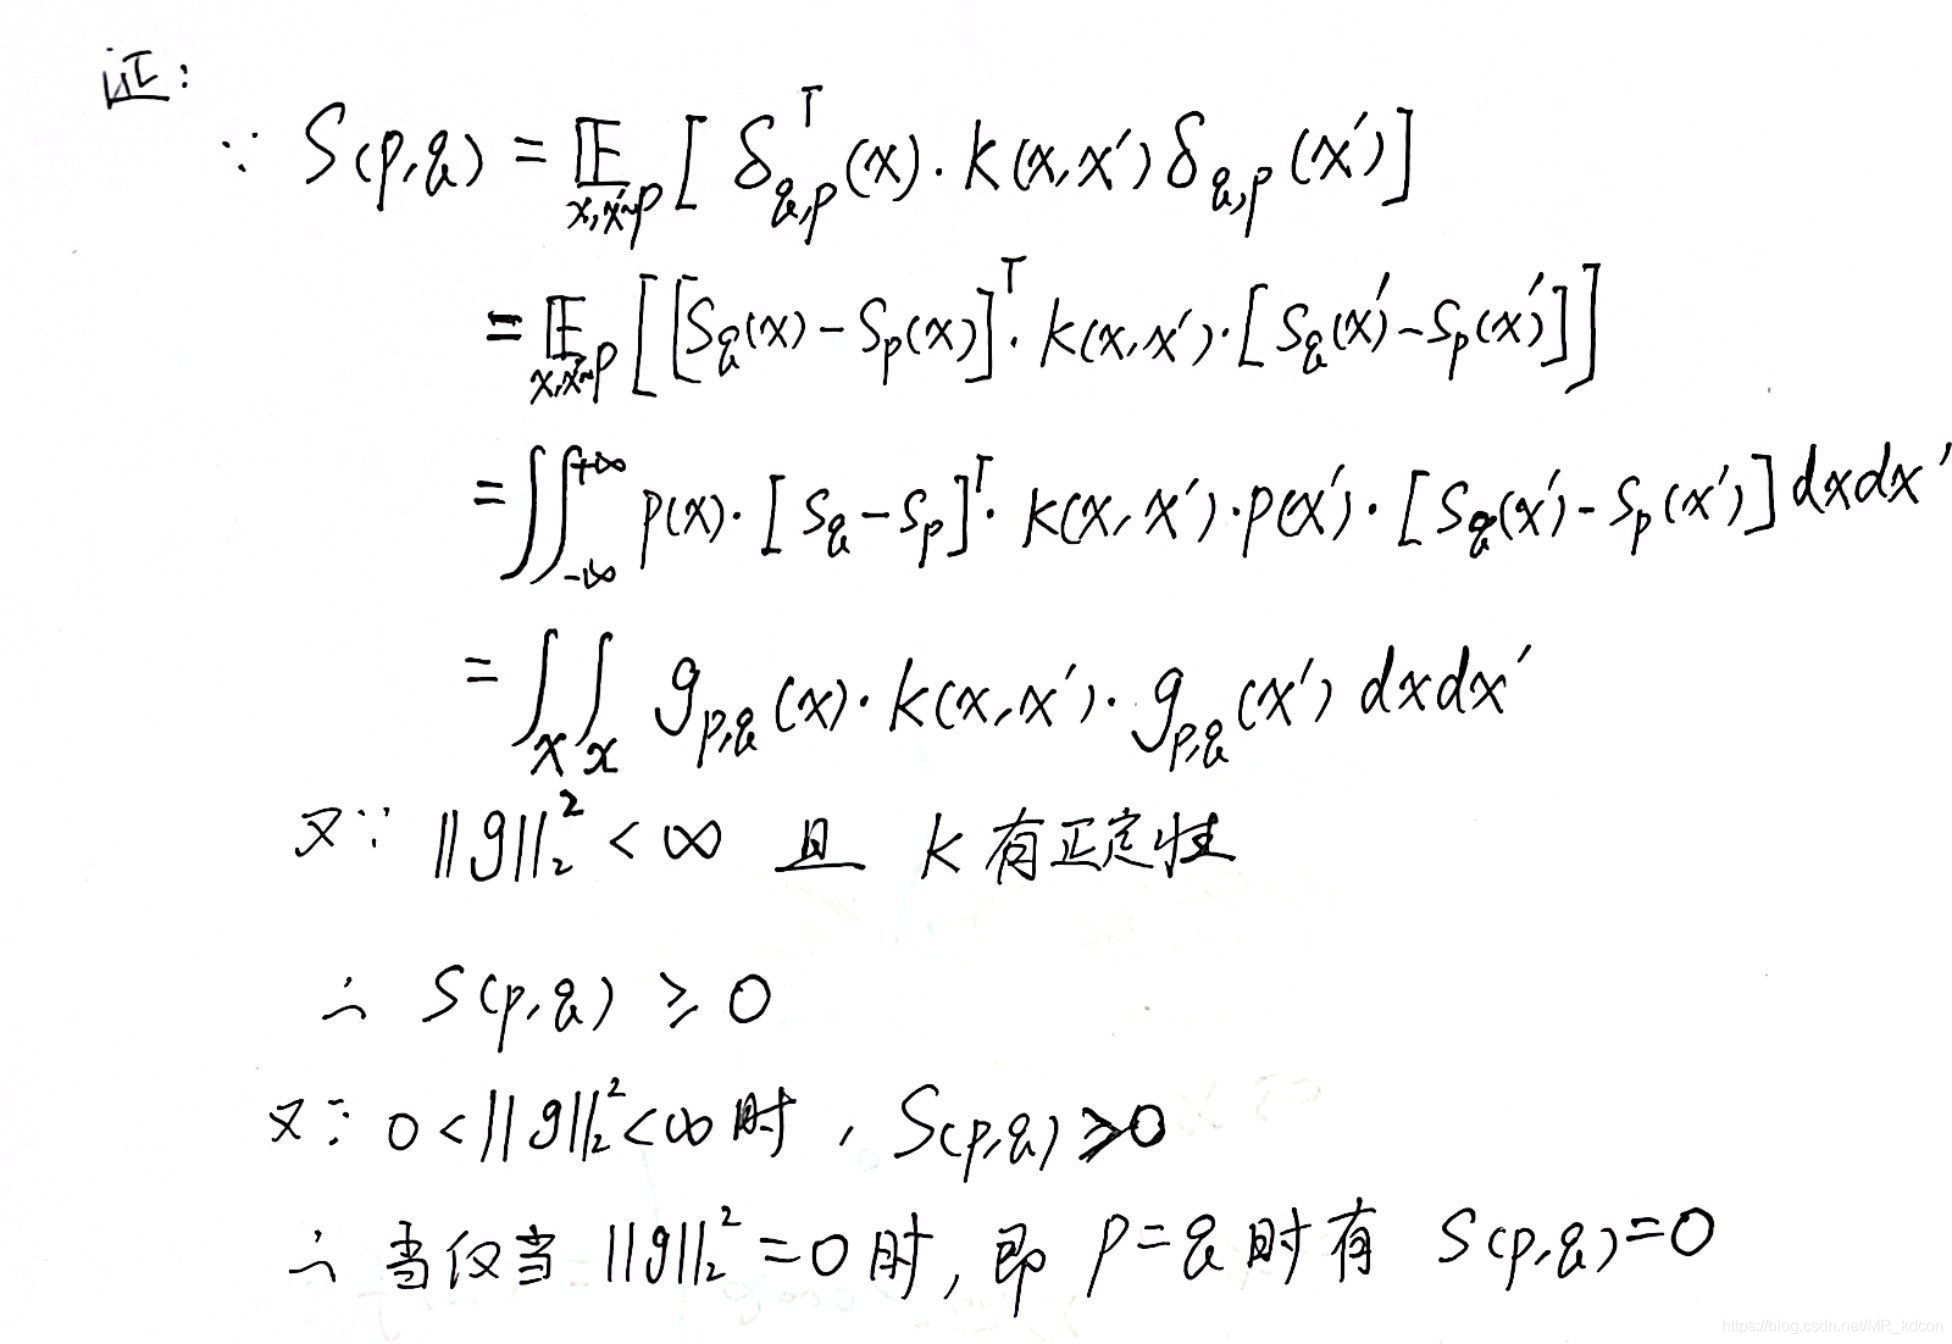 证:
∵ S(p,q) = 𝔼_{x,x'~p} [ δ_{q,p}^T (x) · k(x,x') δ_{q,p} (x') ]
= 𝔼_{x,x'~p} [ [S_q(x) - S_p(x)]^T · k(x,x') · [S_q(x') - S_p(x')] ]
= ∬_{-∞}^{+∞} p(x) · [S_q - S_p]^T · k(x,x') · p(x') · [S_q(x') - S_p(x')] dxdx'
= ∫_x ∫_x g_{p,q}(x) · k(x,x') · g_{p,q}(x') dxdx'
又∵ ||g||_2^2 < ∞ 且 k 有正定性
∴ S(p,q) ≥ 0
又∵ 0 < ||g||_2^2 < ∞ 时, S(p,q) ≥ 0
∴ 当仅当 ||g||_2^2 = 0 时, 即 p = q 时有 S(p,q) = 0
https://blog.csdn.net/MR_kdcon